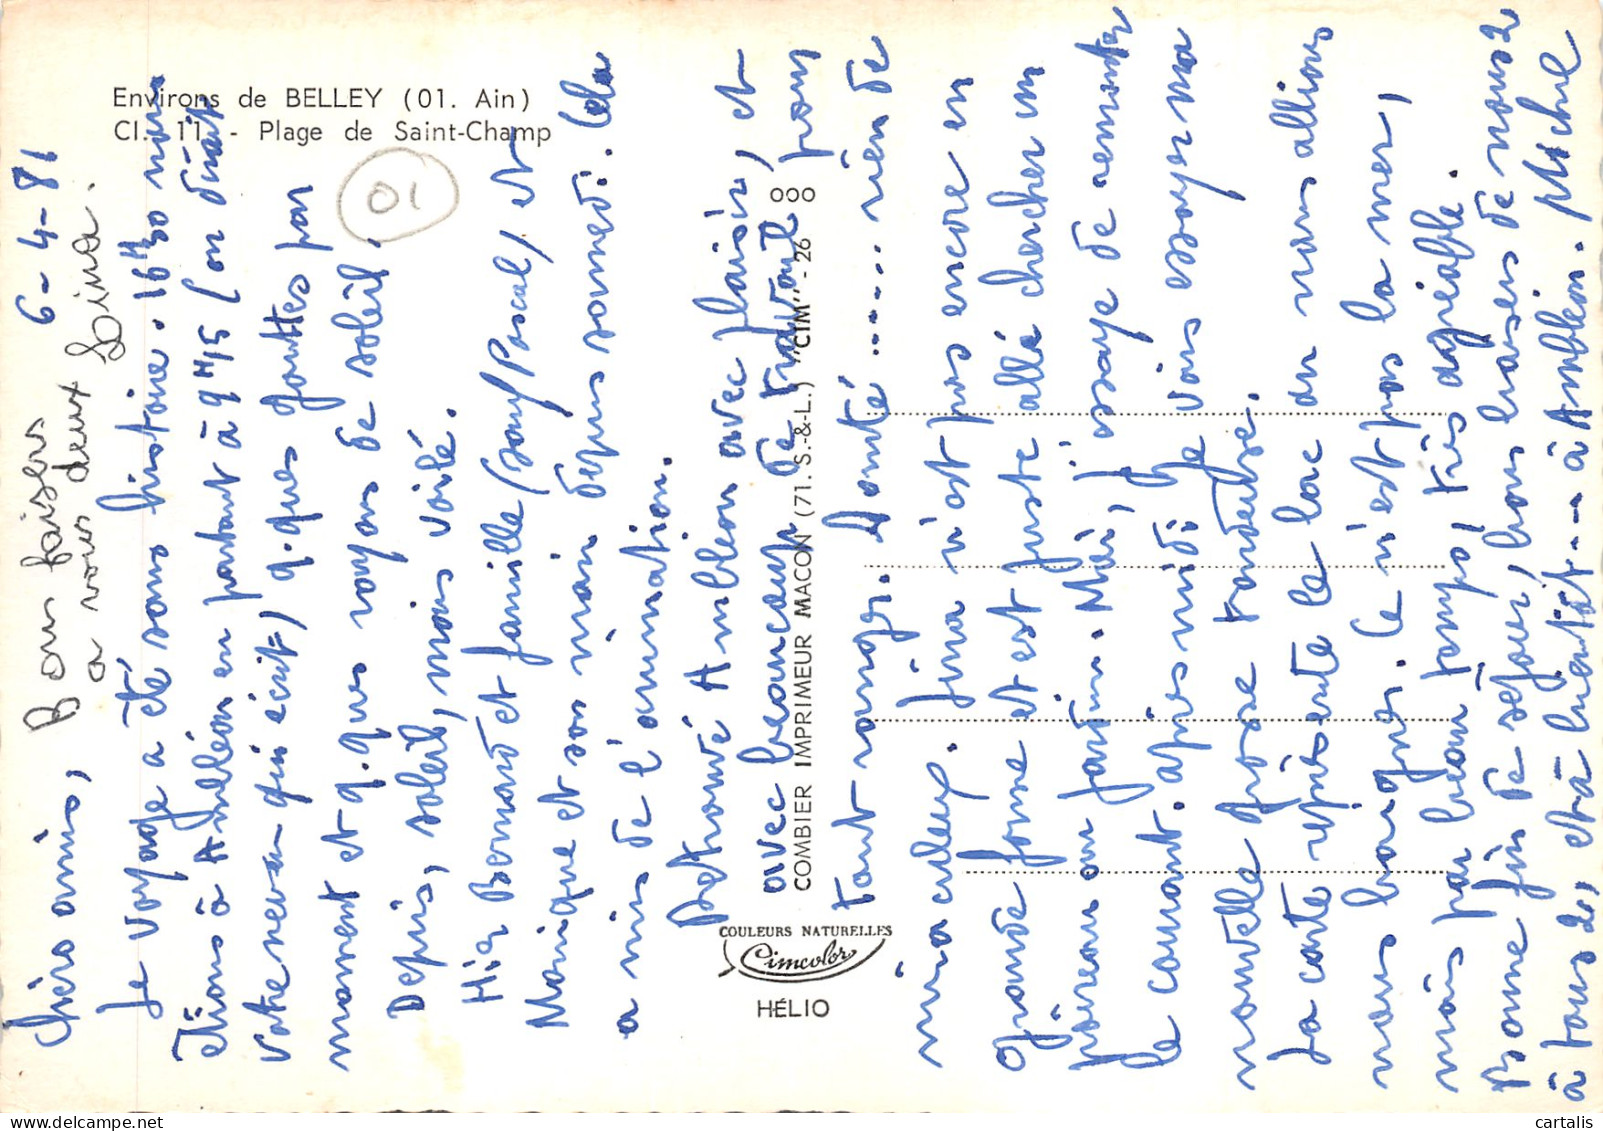 Environs de BELLEY (01. Ain)
CI. 11 - Plage de Saint-Champ
01
6-4-81
Chers amis,
Bons baisers
a vous deux
Le voyage a été sans histoire. 16H30 nous
étions à Ambléon en partant à 9H15 (on dirait
votre neveu qui écrit) q.ques gouttes par
moment et q.ques rayons de soleil.
Depuis, soleil, mais voilé.
Hier Bernard et famille (sauf Pascal) et
Monique et son mari depuis samedi. Cela
a mis de l'animation.
Retrouvé Ambléon avec plaisir, et
avec beaucoup de travail pour
tout ranger. Santé ...... rien de
miraculeux. Jima n'est pas encore en
grande forme et est juste allé chercher un
poireau au jardin. Moi, j'essaye de remonter
le courant. après midi je vais essayer ma
nouvelle grosse tondeuse.
La carte représente le lac où nous allions
nous baigner. Ce n'est pas la mer,
mais par beau temps, très agréable.
Bonne fin de séjour, bons baisers de nous 2
à tous 2, et à bientôt --- à Ambléon. Miche
COMBIER IMPRIMEUR MACON (71. S.-&-L.) "CIM" - 26 000
COULEURS NATURELLES
Cimcolor
HÉLIO
cartalis